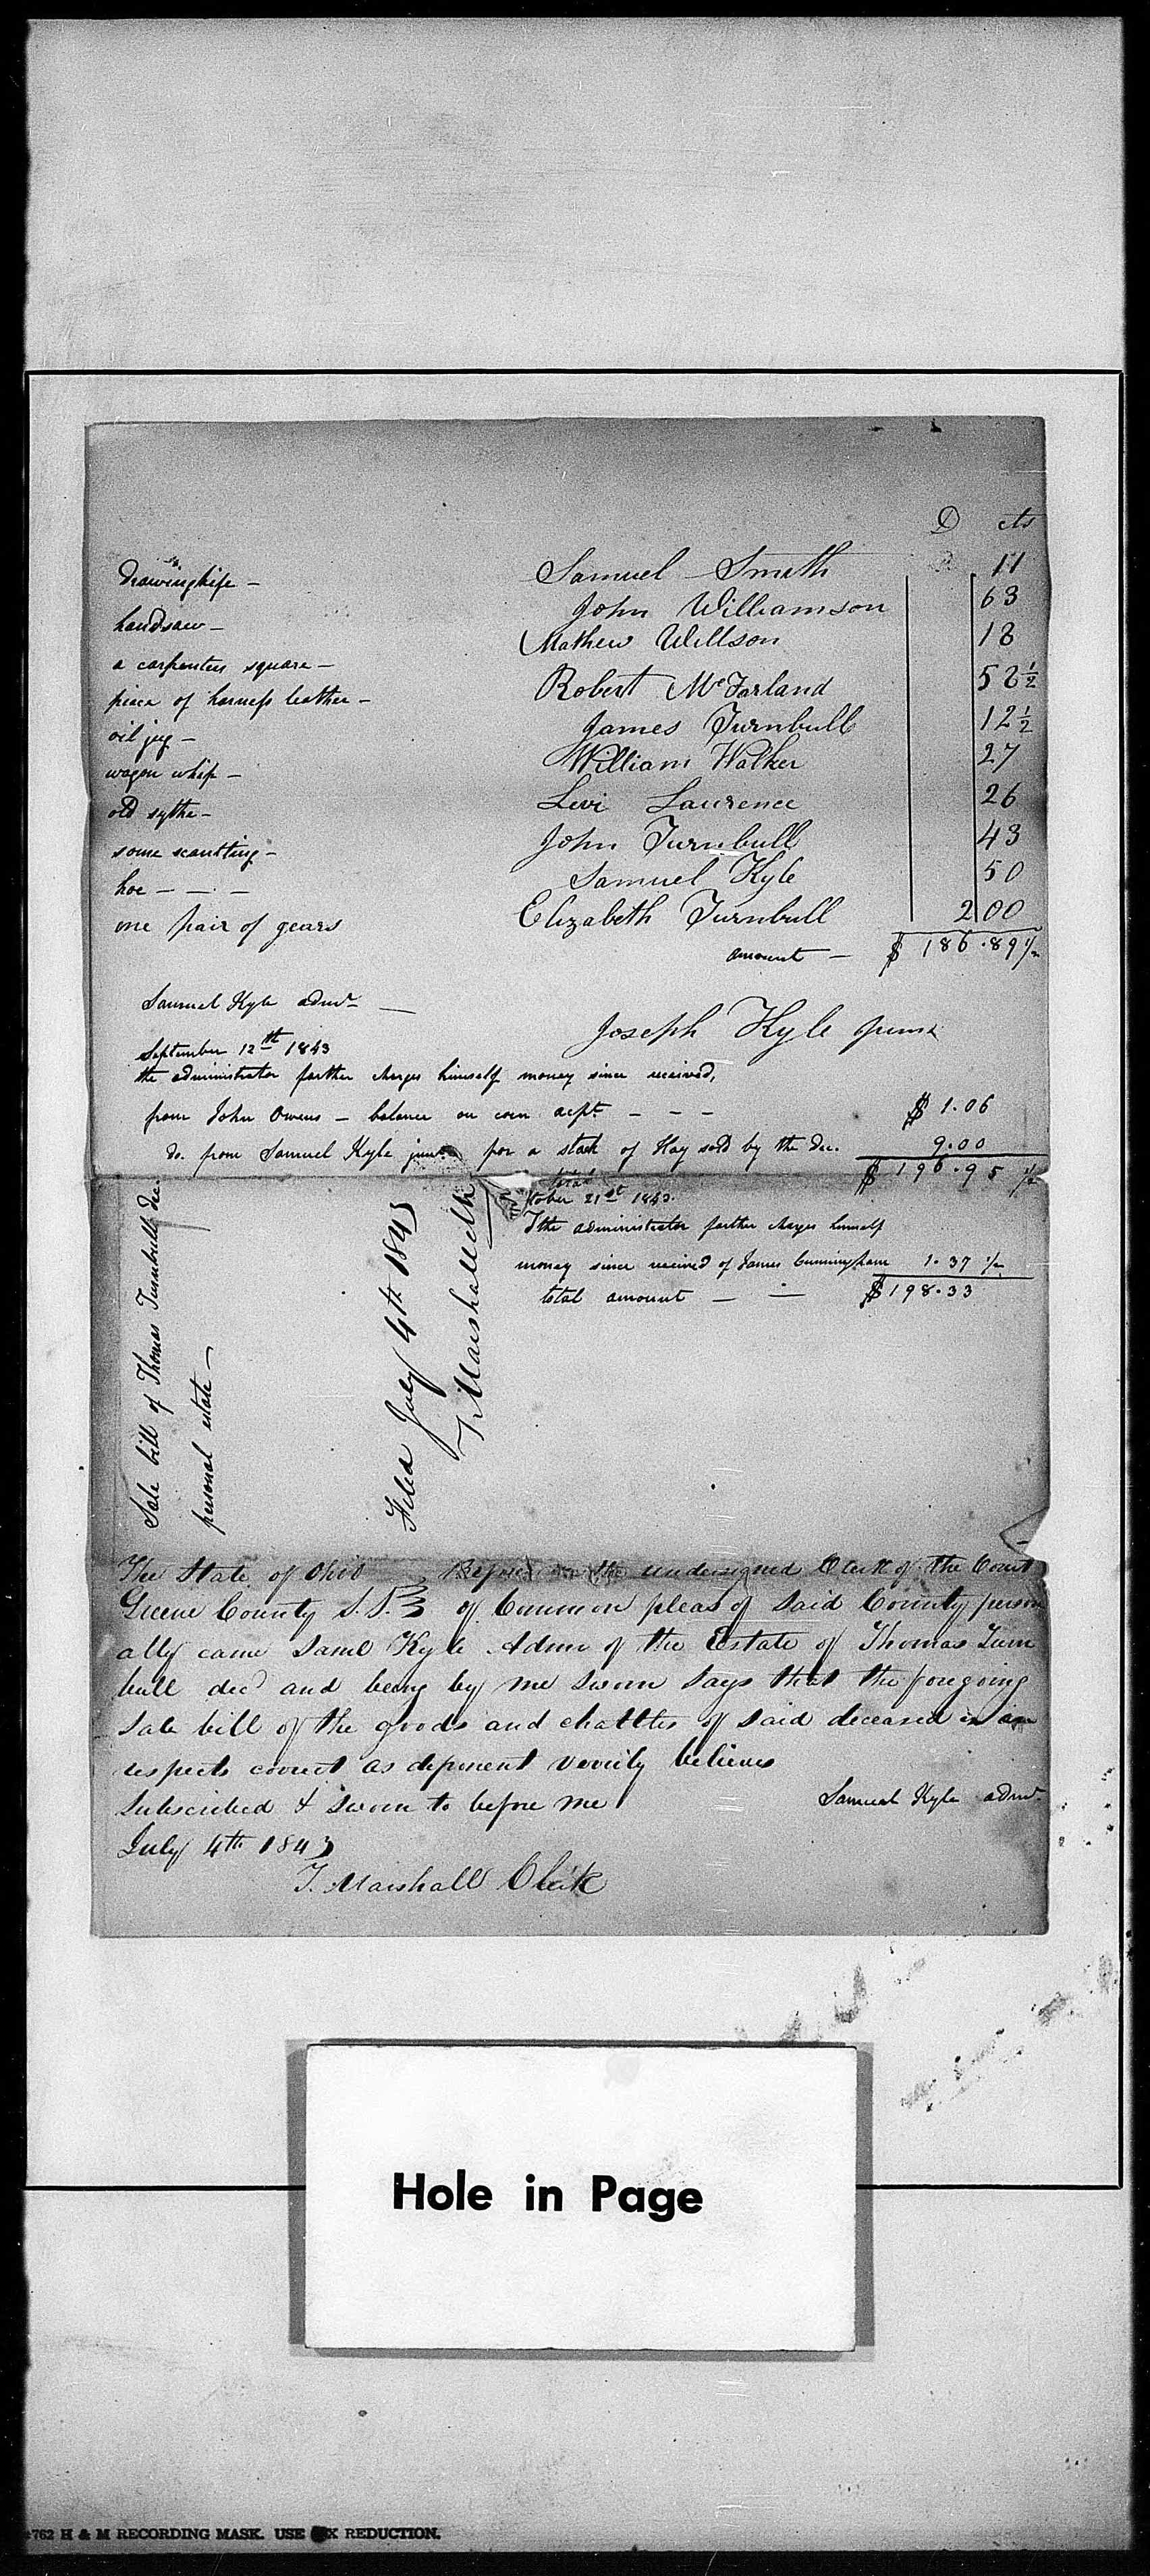 D cts
drawingknife – Samuel Smith 11
handsaw – John Williamson 63
a carpenters square – Mathew Willson 18
piece of harness leather – Robert McFarland 52 ½
oil jug – James Turnbull 12 ½
wagon whip – William Walker 27
old sythe – Levi Laurence 26
some scantling – John Turnbull 43
hoe – – – Samuel Kyle 50
one pair of gears Elizabeth Turnbull 2 00
amount – $ 186.89 ½
Samuel Kyle admr. —
Joseph Kyle
September 12th 1843
the administrator farther charges himself money since received,
from John Owens – balance on corn acpt. – – – $ 1.06
do. from Samuel Kyle junr. for a stack of Hay sold by the dec. 9.00
total $ 196.95 ½
tober 21st 1843.
the administrator farther charges himself
money since received of James Cunningham 1.37 ½
total amount — — $198.33
Sale bill of Thomas Turnbull dec.
personal estate –
Filed July 4th 1843
T. Marshall clk
The State of Ohio Before the undersigned Clerk of the Court
Greene County S.S. of Common pleas of Said County person
ally came Saml Kyle Admr of the Estate of Thomas Turn
bull decd and being by me sworn says that the foregoing
sale bill of the goods and chattles of said deceased is
respects correct as deponent verily believes
Subscribed & sworn to before me Samuel Kyle admr.
July 4th 1843
T. Marshall Clerk
Hole in Page
762 H & M RECORDING MASK. USE X REDUCTION.